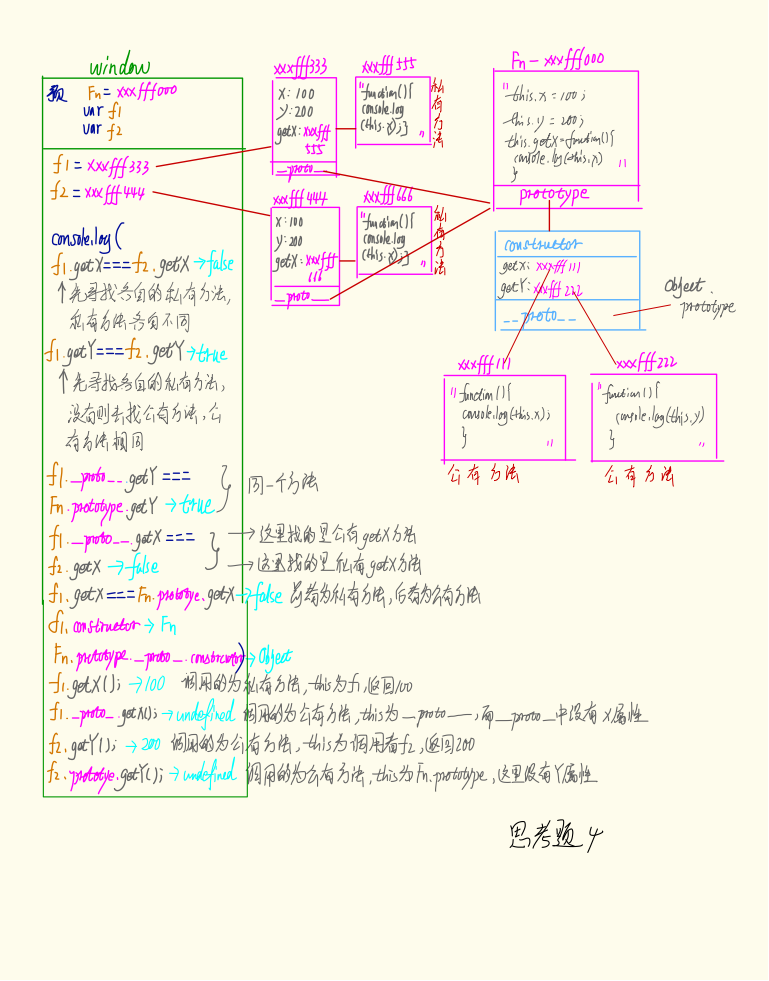 window
预
Fn = xxxfff000
var f1
var f2
f1 = xxxfff333
f2 = xxxfff444
console.log(
f1.getX===f2.getX→false
↑先寻找各自的私有方法,
私有方法各自不同
f1.getY===f2.getY→true
↑先寻找各自的私有方法,
没有则去找公有方法,公
有方法相同
f1.__proto__.getY ===
Fn.prototype.getY →true
同一个方法
f1.__proto__.getX ===
→这里找的是公有getX方法
f2.getX →false
→这里找的是私有getX方法
f1.getX===Fn.prototye.getX→false 前者为私有方法,后者为公有方法
f1.constructor→Fn
Fn.prototype.__proto__.constructor)→Object
f1.getX(); →100 调用的为私有方法,this为f1,返回100
f1.__proto__.getX(); →undefined 调用的为公有方法,this为__proto__,而__proto__中没有X属性
f2.getY(); →200 调用的为公有方法,this为调用者f2,返回200
f2.prototye.getY(); →undefined 调用的为公有方法,this为Fn.prototype,这里没有Y属性
xxxfff333
x: 100
y: 200
getX: xxxfff
555
__proto__
xxxfff555
"function(){
console.log
(this.x);} "
私有方法
xxxfff444
x: 100
y: 200
getX: xxxfff
666
__proto__
xxxfff666
"function(){
console.log
(this.x);} "
私有方法
Fn - xxxfff000
"
this.x = 100;
this.y = 200;
this.getX=function(){
console.log(this.x)
} "
prototype
constructor
getX: xxxfff111
getY: xxxfff222
__proto__
Object.
prototype
xxxfff111
"function(){
console.log(this.x);
} "
公有方法
xxxfff222
"function(){
console.log(this.y)
} "
公有方法
思考题4